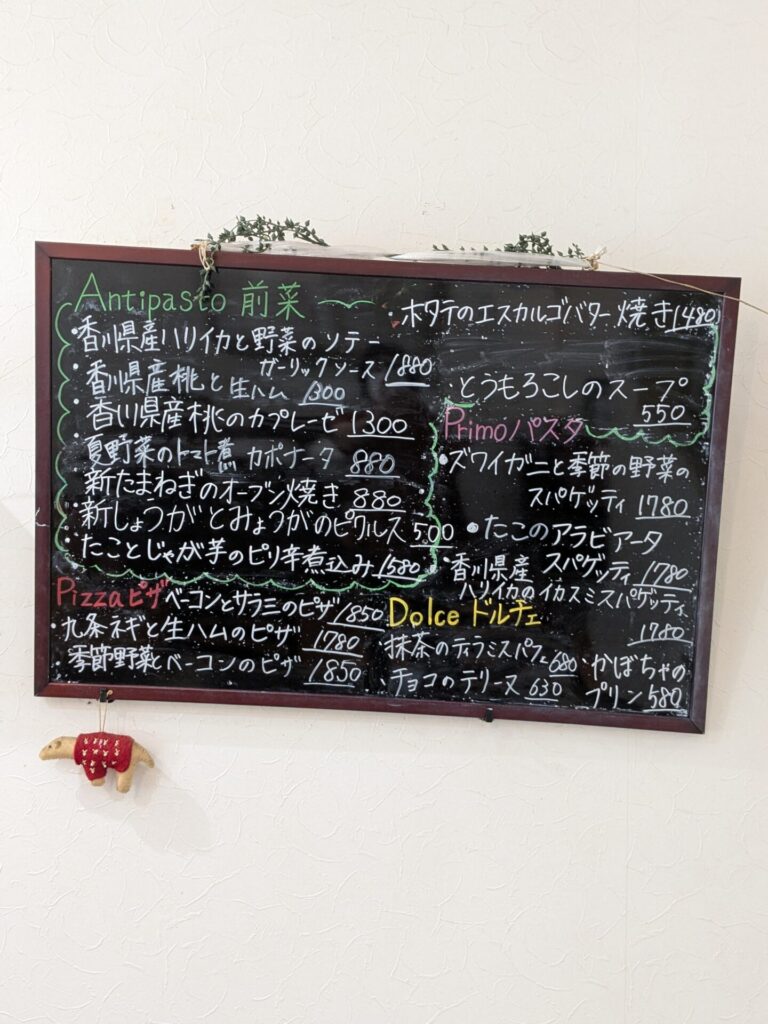 Antipasto 前菜
・香川県産ハリイカと野菜のソテー
ガーリックソース 1880
・香川県産桃と生ハム 1300
・香川県産桃のカプレーゼ 1300
・夏野菜のトマト煮 カポナータ 880
・新たまねぎのオーブン焼き 880
・新しょうがとみょうがのピクルス 500
・たことじゃが芋のピリ辛煮込み 1580
・ホタテのエスカルゴバター焼き 1480
・とうもろこしのスープ
550
Pizza ピザ
・ベーコンとサラミのピザ 1850
・九条ネギと生ハムのピザ 1780
・季節野菜とベーコンのピザ 1850
Primo パスタ
・ズワイガニと季節の野菜の
スパゲッティ 1780
・たこのアラビアータ
スパゲッティ 1780
・香川県産
ハリイカのイカスミスパゲッティ
1780
Dolce ドルチェ
・抹茶のティラミスパフェ 680
・チョコのテリーヌ 630
・かぼちゃの
プリン 580